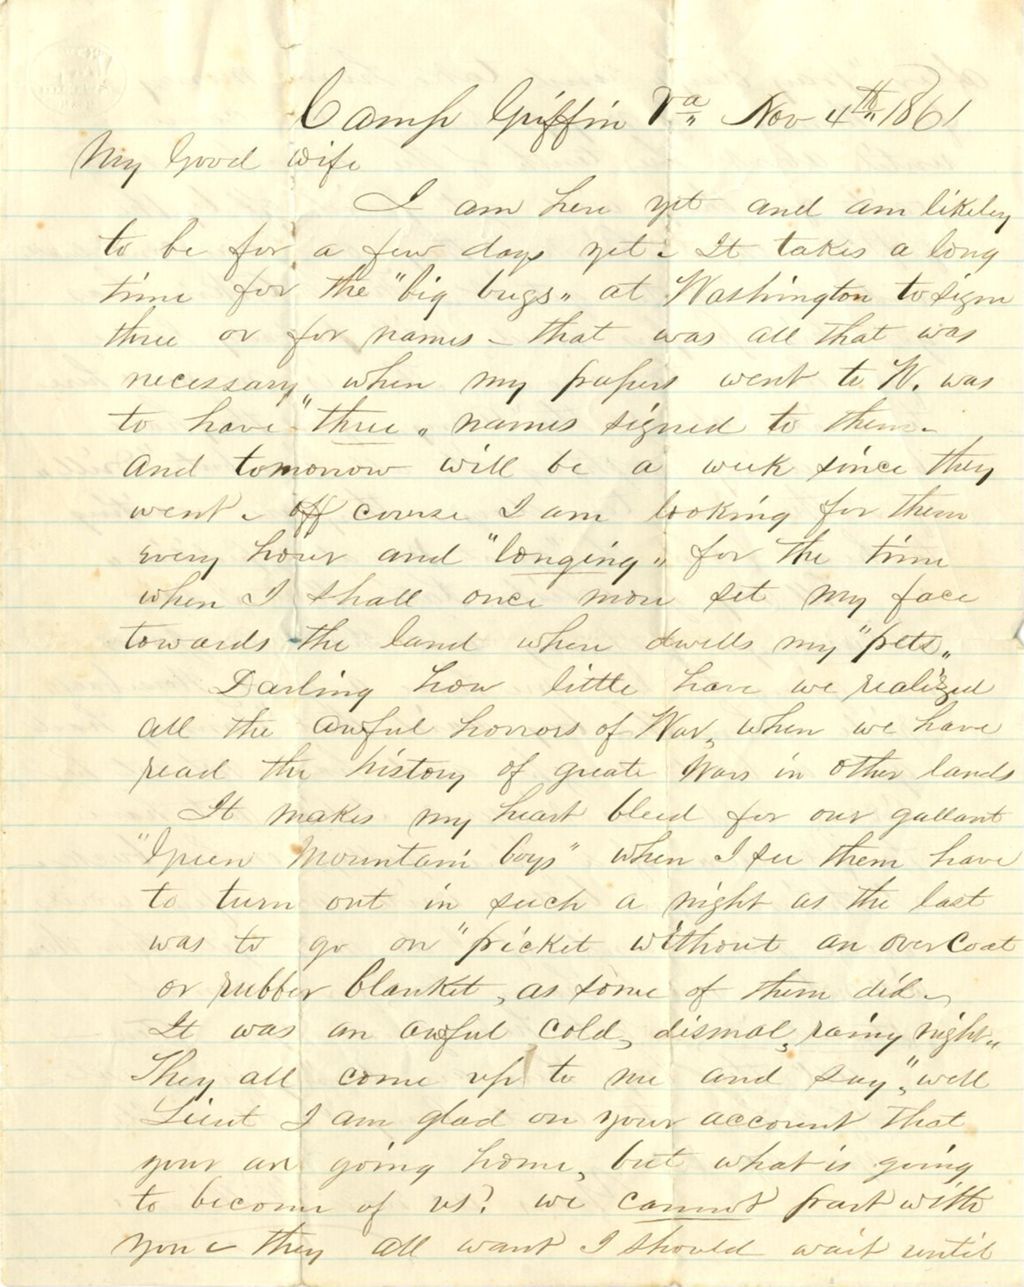 Camp Griffin Va Nov 4th 1861
My Good Wife
I am here yet and am likely
to be for a few days yet. It takes a long
time for the "big bugs" at Washington to sign
three or for names - that was all that was
necessary, when my papers went to W. was
to have "three" names signed to them.
And tomorrow will be a week since they
went. off course I am looking for them
every hour and "longing" for the time
when I shall once more set my face
towards the land where dwells my "pets"
Darling how little have we realized
all the awful horrors of War, when we have
read the history of greate Wars in other lands
It makes my heart bleed for our gallant
"Green Mountain boys" when I see them have
to turn out in such a night as the last
was to go on "picket without an over Coat
or rubber blanket, as some of them did.
It was an awful cold, dismal, rainy night.
They all come up to me and say, "well
Lieut I am glad on your account that
your are going home, but what is going
to become of us? we cannot part with
you - they all want I should wait until